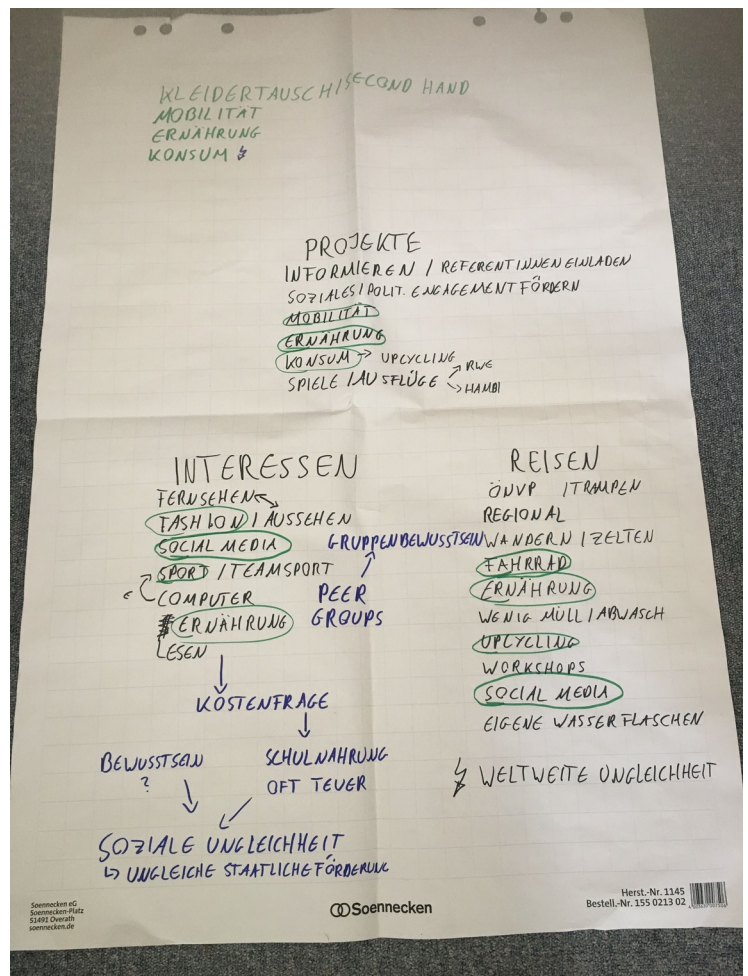 KLEIDERTAUSCH/SECOND HAND
MOBILITÄT
ERNÄHRUNG
KONSUM
PROJEKTE
INFORMIEREN / REFERENTINNEN EINLADEN
SOZIALES/POLIT. ENGAGEMENT FÖRDERN
MOBILITÄT
ERNÄHRUNG
KONSUM → UPCYCLING
SPIELE / AUSFLÜGE
RWE
HAMBI
INTERESSEN
FERNSEHEN
FASHION / AUSSEHEN
SOCIAL MEDIA
SPORT / TEAMSPORT
COMPUTER
ERNÄHRUNG
LESEN
GRUPPENBEWUSSTSEIN
PEER
GROUPS
KOSTENFRAGE
BEWUSSTSEIN
?
SCHULNAHRUNG
OFT TEUER
SOZIALE UNGLEICHHEIT
↳ UNGLEICHE STAATLICHE FÖRDERUNG
REISEN
ÖNVP / TRAMPEN
REGIONAL
WANDERN / ZELTEN
FAHRRAD
ERNÄHRUNG
WENIG MÜLL / ABWASCH
UPLYCLING
WORKSHOPS
SOCIAL MEDIA
EIGENE WASSERFLASCHEN
WELTWEITE UNGLEICHHEIT
Soennecken eG
Soennecken-Platz
51491 Overath
soennecken.de
Soennecken
Herst.-Nr. 1145
Bestell.-Nr. 155 0213 02